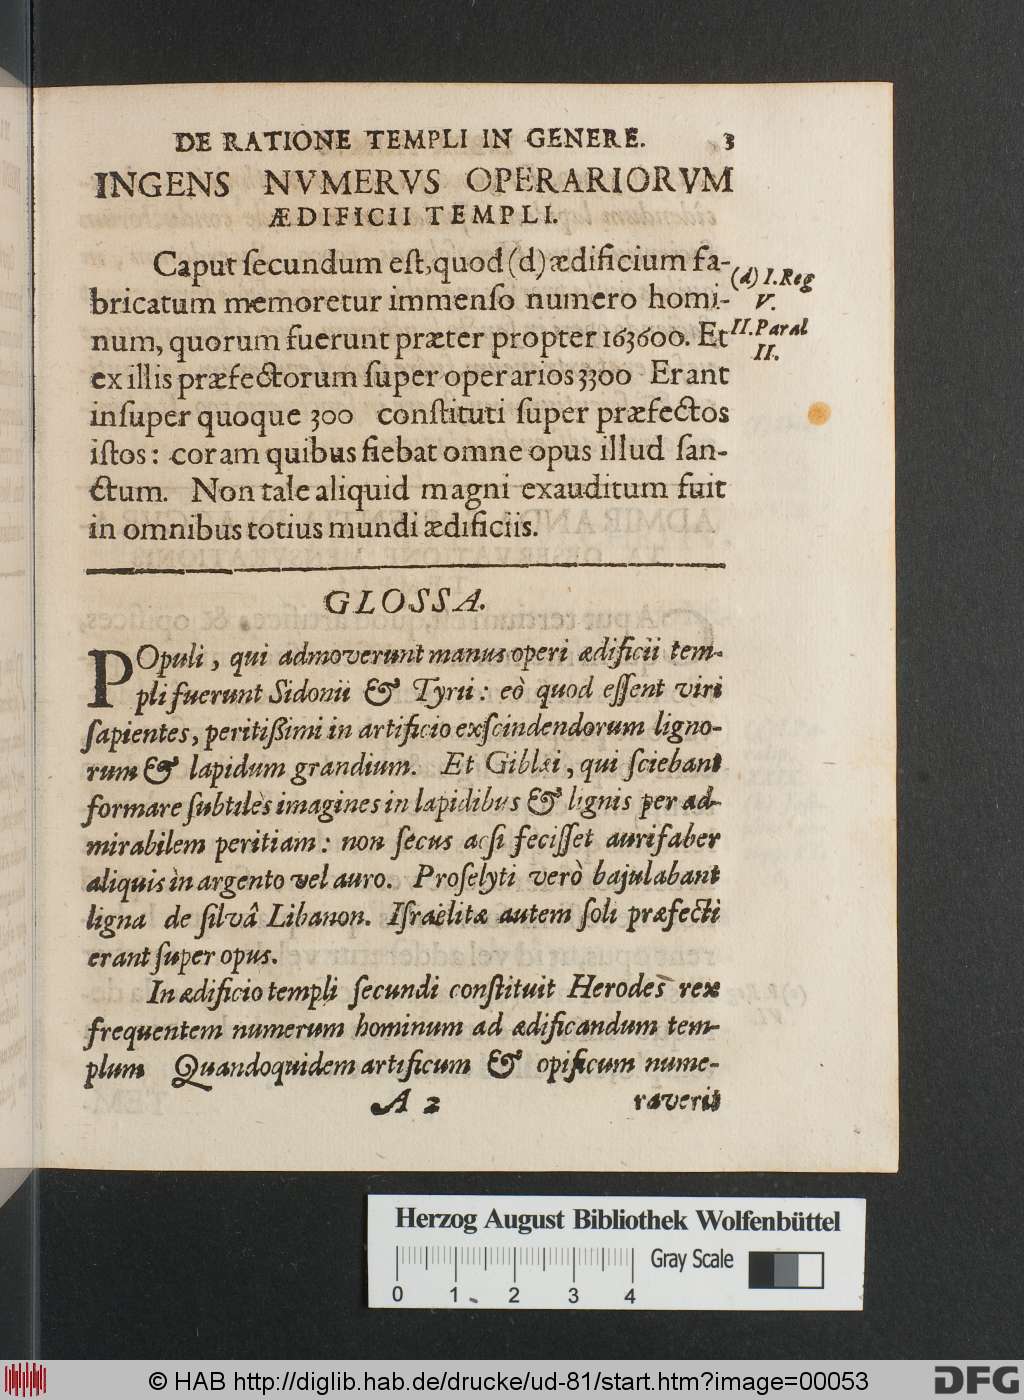 DE RATIONE TEMPLI IN GENERE. 3
INGENS NVMERVS OPERARIORVM
ÆDIFICII TEMPLI.
Caput ſecundum eſt, quod (d) ædificium fa-
bricatum memoretur immenſo numero homi-
num, quorum fuerunt præter propter 163600. Et
ex illis præfectorum ſuper operarios 3300 Erant
inſuper quoque 300 conſtituti ſuper præfectos
iſtos: coram quibus fiebat omne opus illud ſan-
ctum. Non tale aliquid magni exauditum fuit
in omnibus totius mundi ædificiis.
(d) I. Reg
V.
II. Paral
II.
GLOSSA.
POpuli, qui admoverunt manus operi ædificii tem-
pli fuerunt Sidonii & Tyrii: eò quod eſſent viri
ſapientes, peritißimi in artificio exſcindendorum ligno-
rum & lapidum grandium. Et Giblæi, qui ſciebant
formare ſubtiles imagines in lapidibus & lignis per ad-
mirabilem peritiam: non ſecus acſi feciſſet aurifaber
aliquis in argento vel auro. Proſelyti verò bajulabant
ligna de ſilvâ Libanon. Iſraëlitæ autem ſoli præfecti
erant ſuper opus.
In ædificio templi ſecundi conſtituit Herodes rex
frequentem numerum hominum ad ædificandum tem-
plum Quandoquidem artificum & opificum nume-
A 2 raverit
Herzog August Bibliothek Wolfenbüttel
Gray Scale
0 1 2 3 4
© HAB http://diglib.hab.de/drucke/ud-81/start.htm?image=00053
DFG